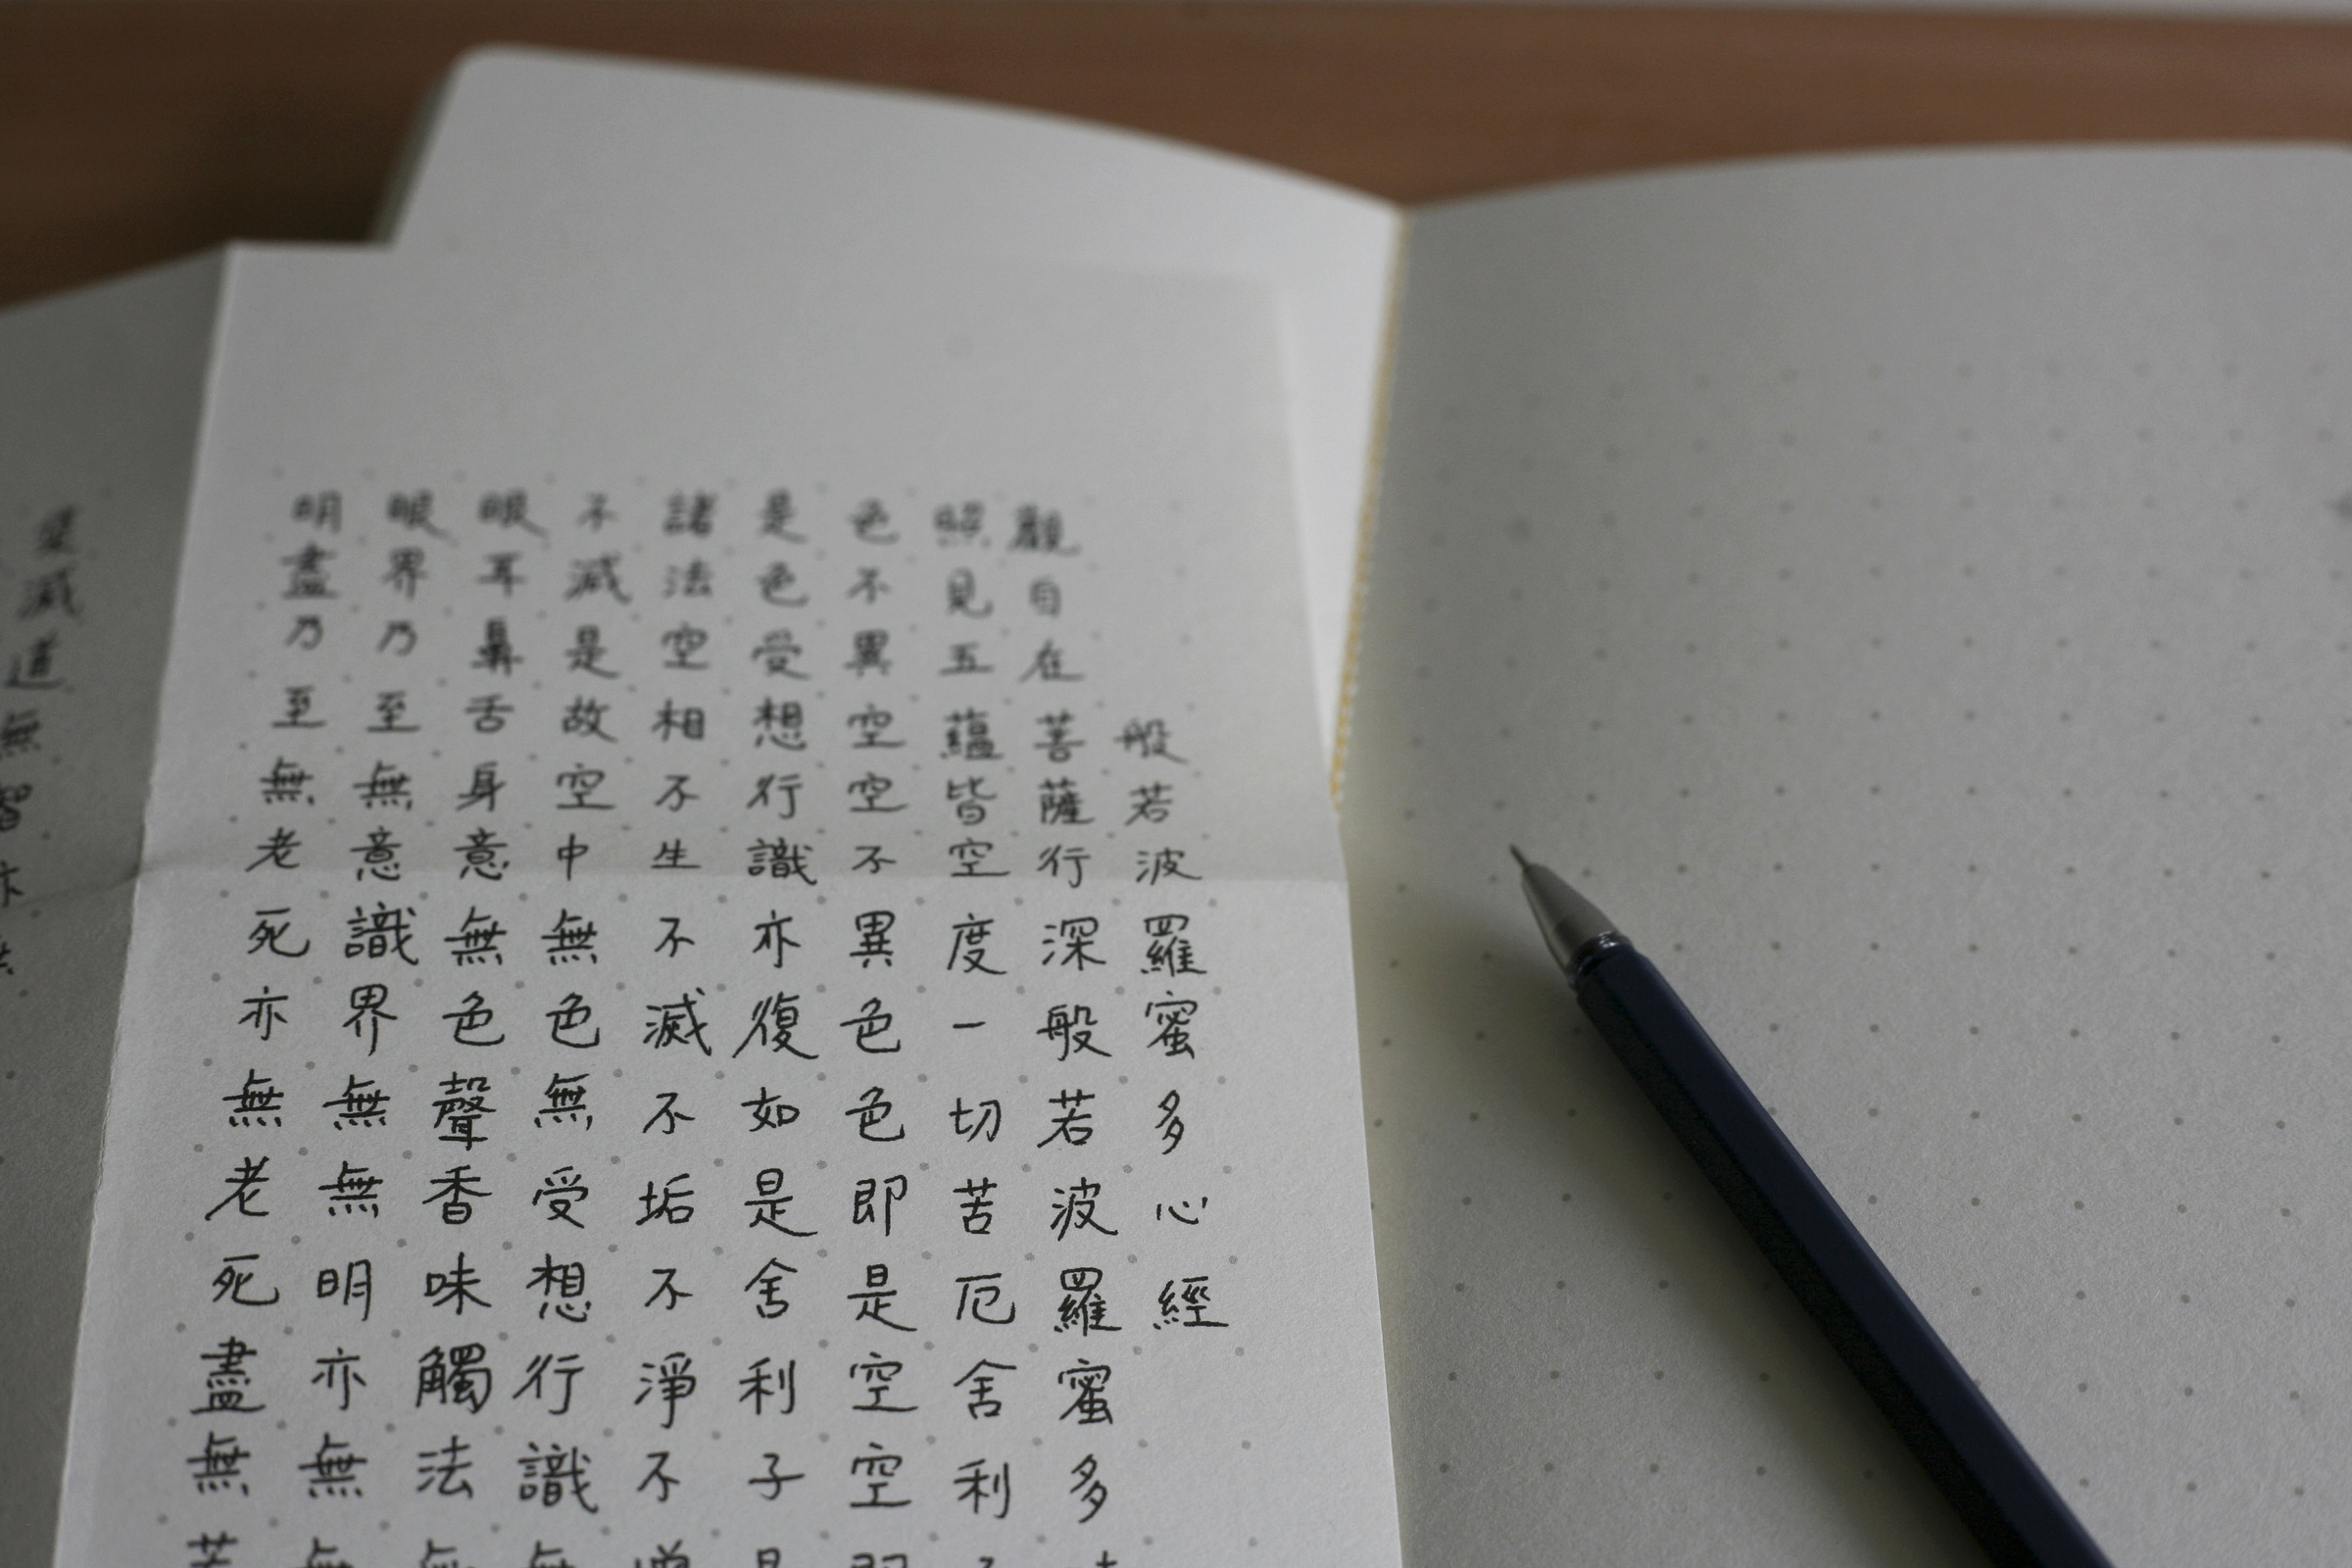 般若波羅蜜多心經
觀自在菩薩行深般若波羅蜜多時
照見五蘊皆空度一切苦厄舍利子
色不異空空不異色色即是空空即
是色受想行識亦復如是舍利子是
諸法空相不生不滅不垢不淨不增
不滅是故空中無色無受想行識無
眼耳鼻舌身意無色聲香味觸法無
眼界乃至無意識界無無明亦無無
明盡乃至無老死亦無老死盡無苦
集滅道無智亦無